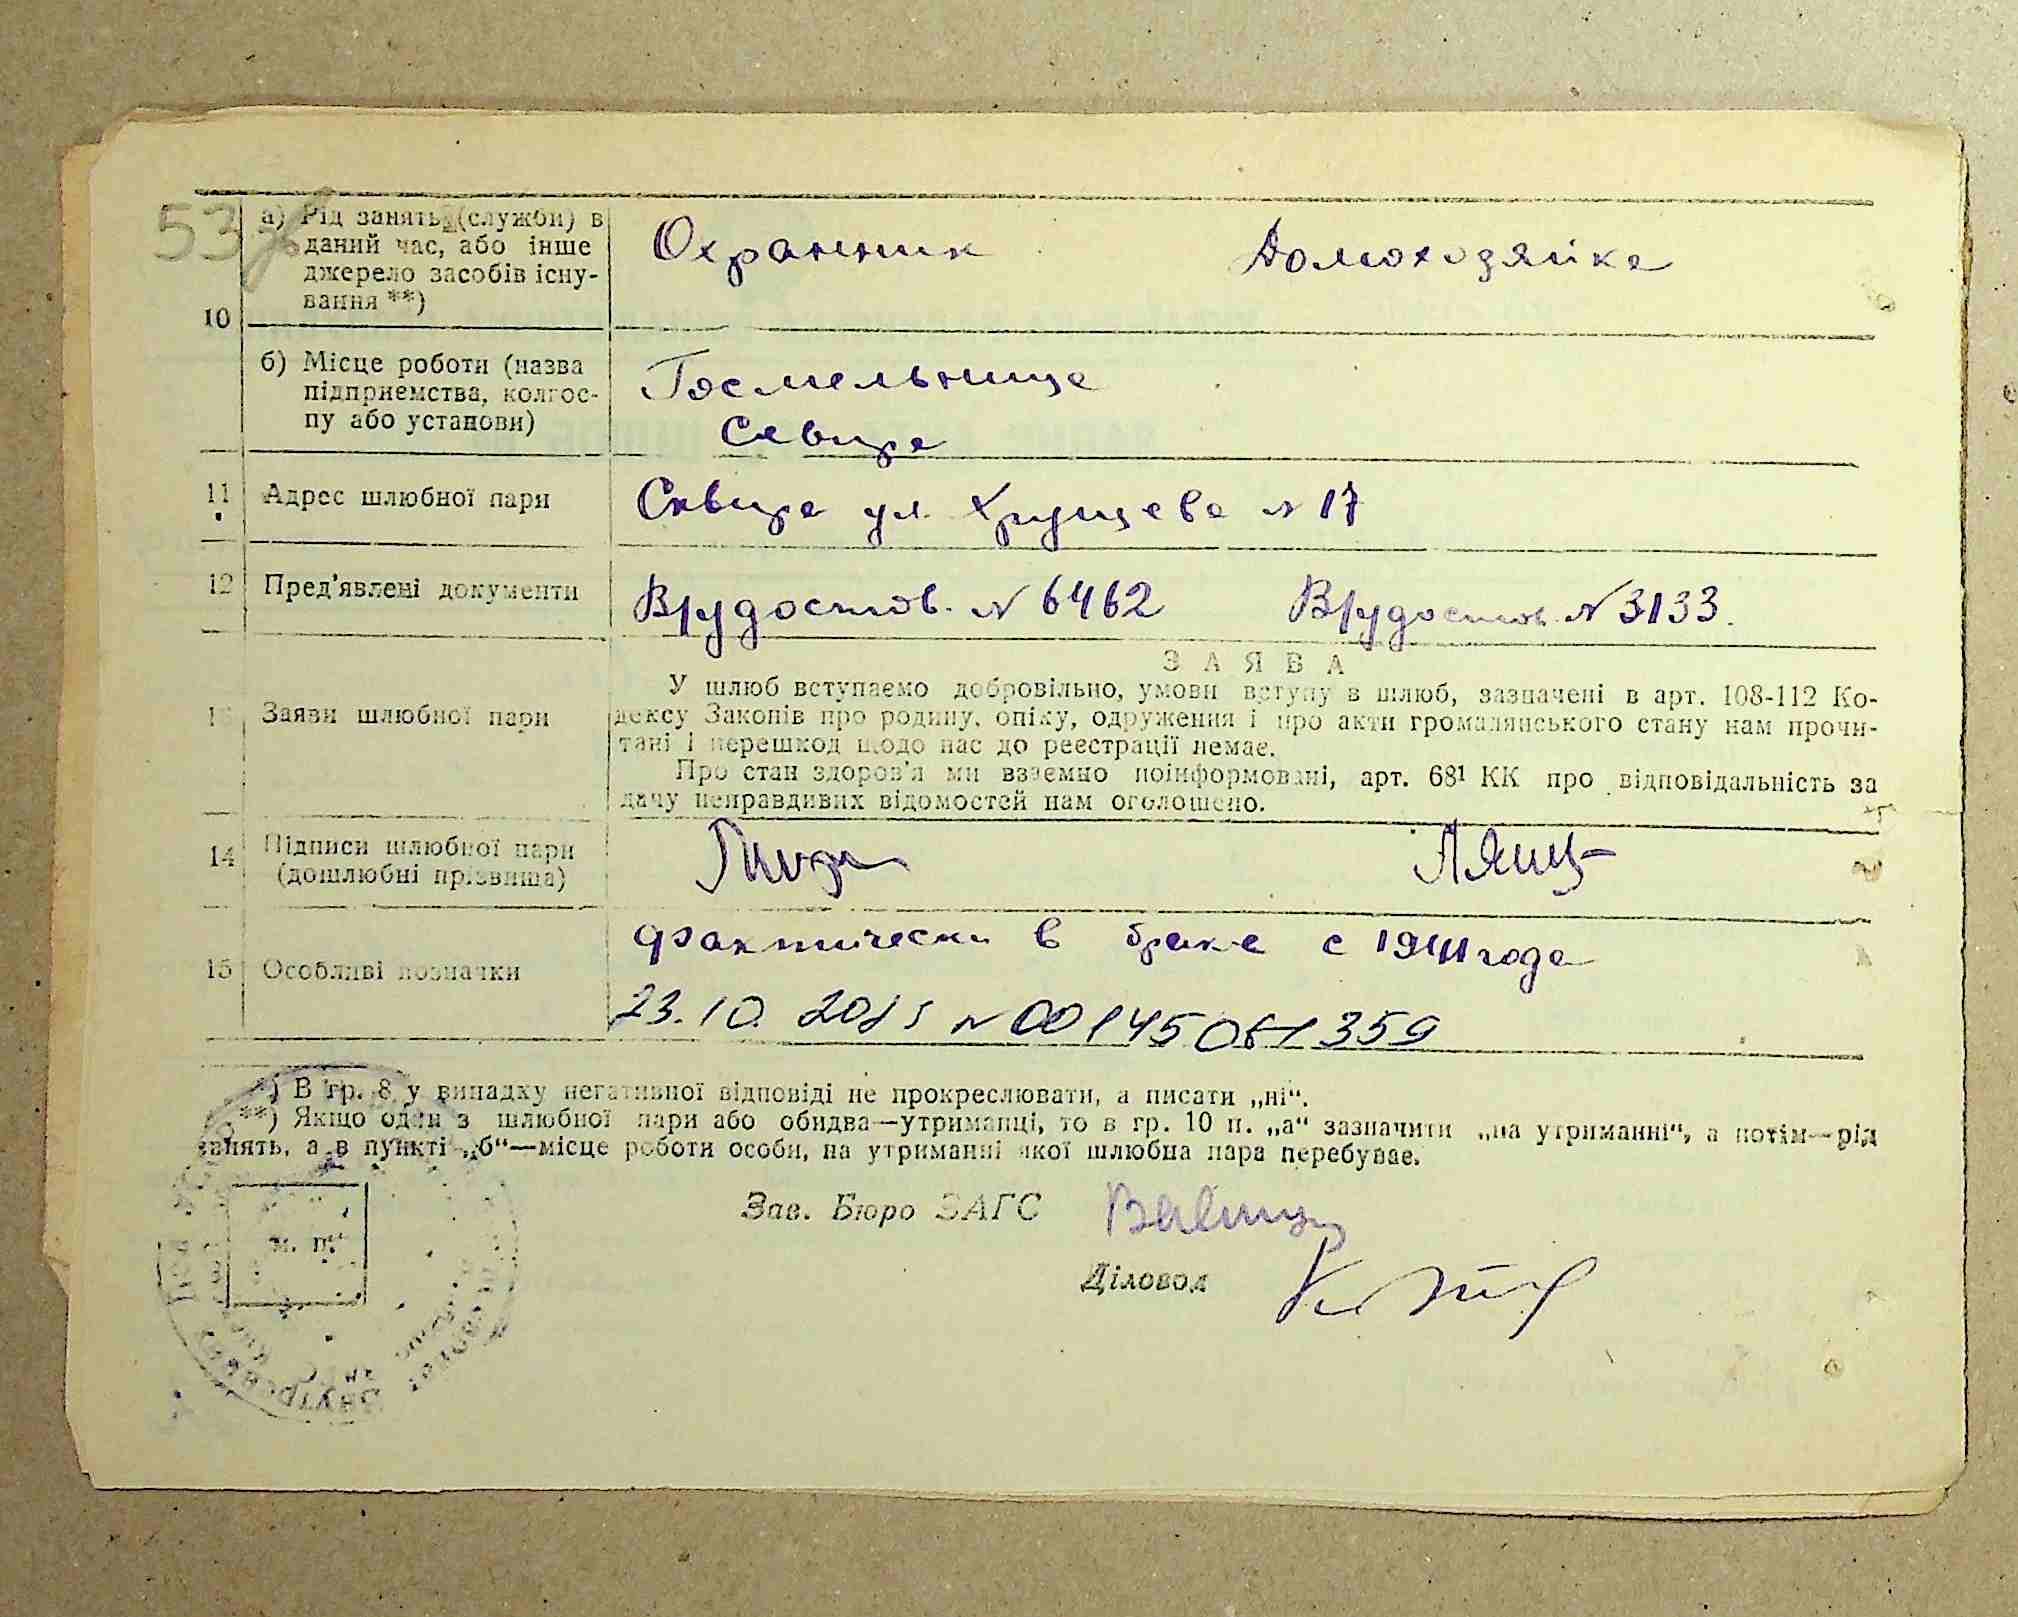 53
10
а) Рід занять (служби) в
даний час, або інше
джерело засобів існу-
вання **)
Охранник
Домохозяйка
б) Місце роботи (назва
підприємства, колгос-
пу або установи)
Госмельница
Сквира
11 Адрес шлюбної пари
Сквира ул. Хрущева № 17
12 Пред'явлені документи
Вр удостов. № 6462
Вр удостов. № 3133.
13 Заяви шлюбної пари
ЗАЯВА
У шлюб вступаємо добровільно, умови вступу в шлюб, зазначені в арт. 108-112 Ко-
дексу Законів про родину, опіку, одруження і про акти громадянського стану нам прочи-
тані і перешкод щодо нас до реєстрації немає.
Про стан здоров'я ми взаємно поінформовані, арт. 68¹ КК про відповідальність за
дачу неправдивих відомостей нам оголошено.
14 Підписи шлюбної пари
(дошлюбні прізвища)
15 Особливі позначки
фактически в браке с 1941 года
23.10.2015 № 00145061359
*) В гр. 8 у випадку негативної відповіді не прокреслювати, а писати „ні“.
**) Якщо один з шлюбної пари або обидва—утриманці, то в гр. 10 п. „а“ зазначити „на утриманні“, а потім—рід
занять, а в пункті „б“—місце роботи особи, на утриманні якої шлюбна пара перебуває.
Зав. Бюро ЗАГС
м. п.
Діловод